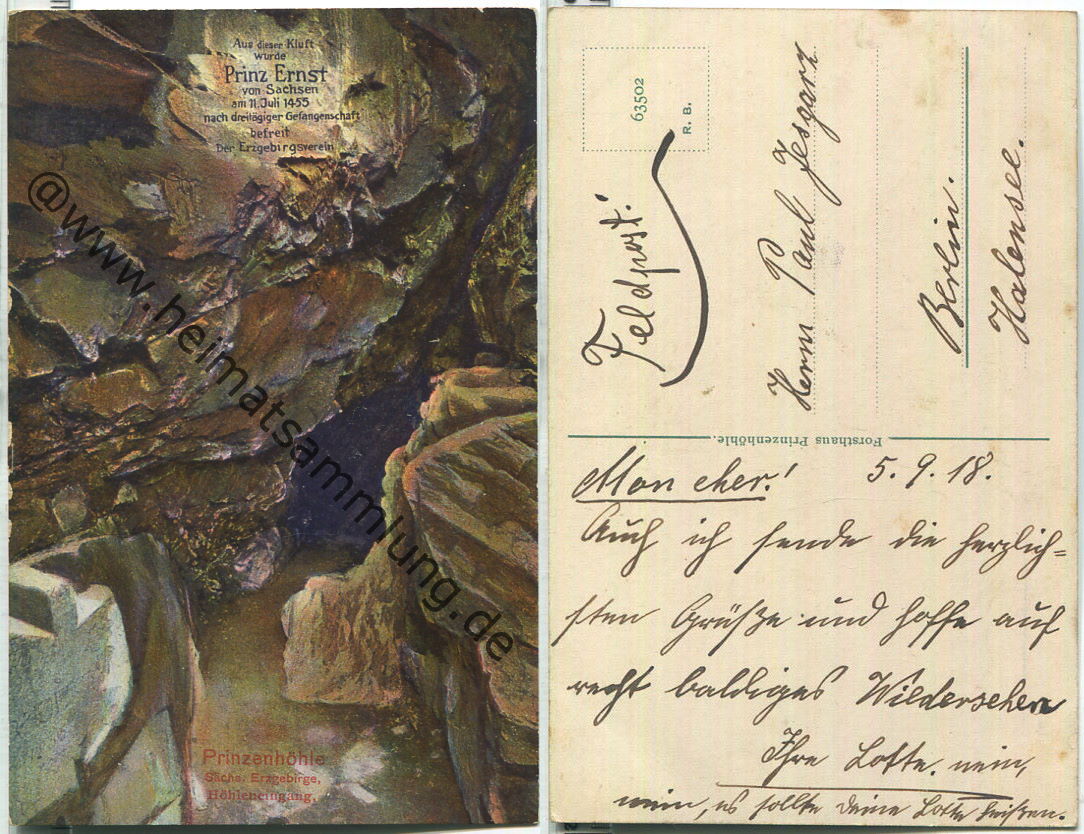 Aus dieser Kluft
wurde
Prinz Ernst
von Sachsen
am 11. Juli 1455
nach dreitägiger Gefangenschaft
befreit
Der Erzgebirgsverein
@www.heimatsammlung.de
Prinzenhöhle
Sächs. Erzgebirge,
Höhleneingang,
63502
R. B.
Feldpost!
Herrn Paul Jesgarz
Berlin.
Halensee.
Forsthaus Prinzenhöhle.
Mon cher! 5.9.18.
Auch ich sende die herzlich=
sten Grüße und hoffe auf
recht baldiges Wiedersehen
Ihre Lotte. nein,
nein, es sollte deine Lotte heißen.